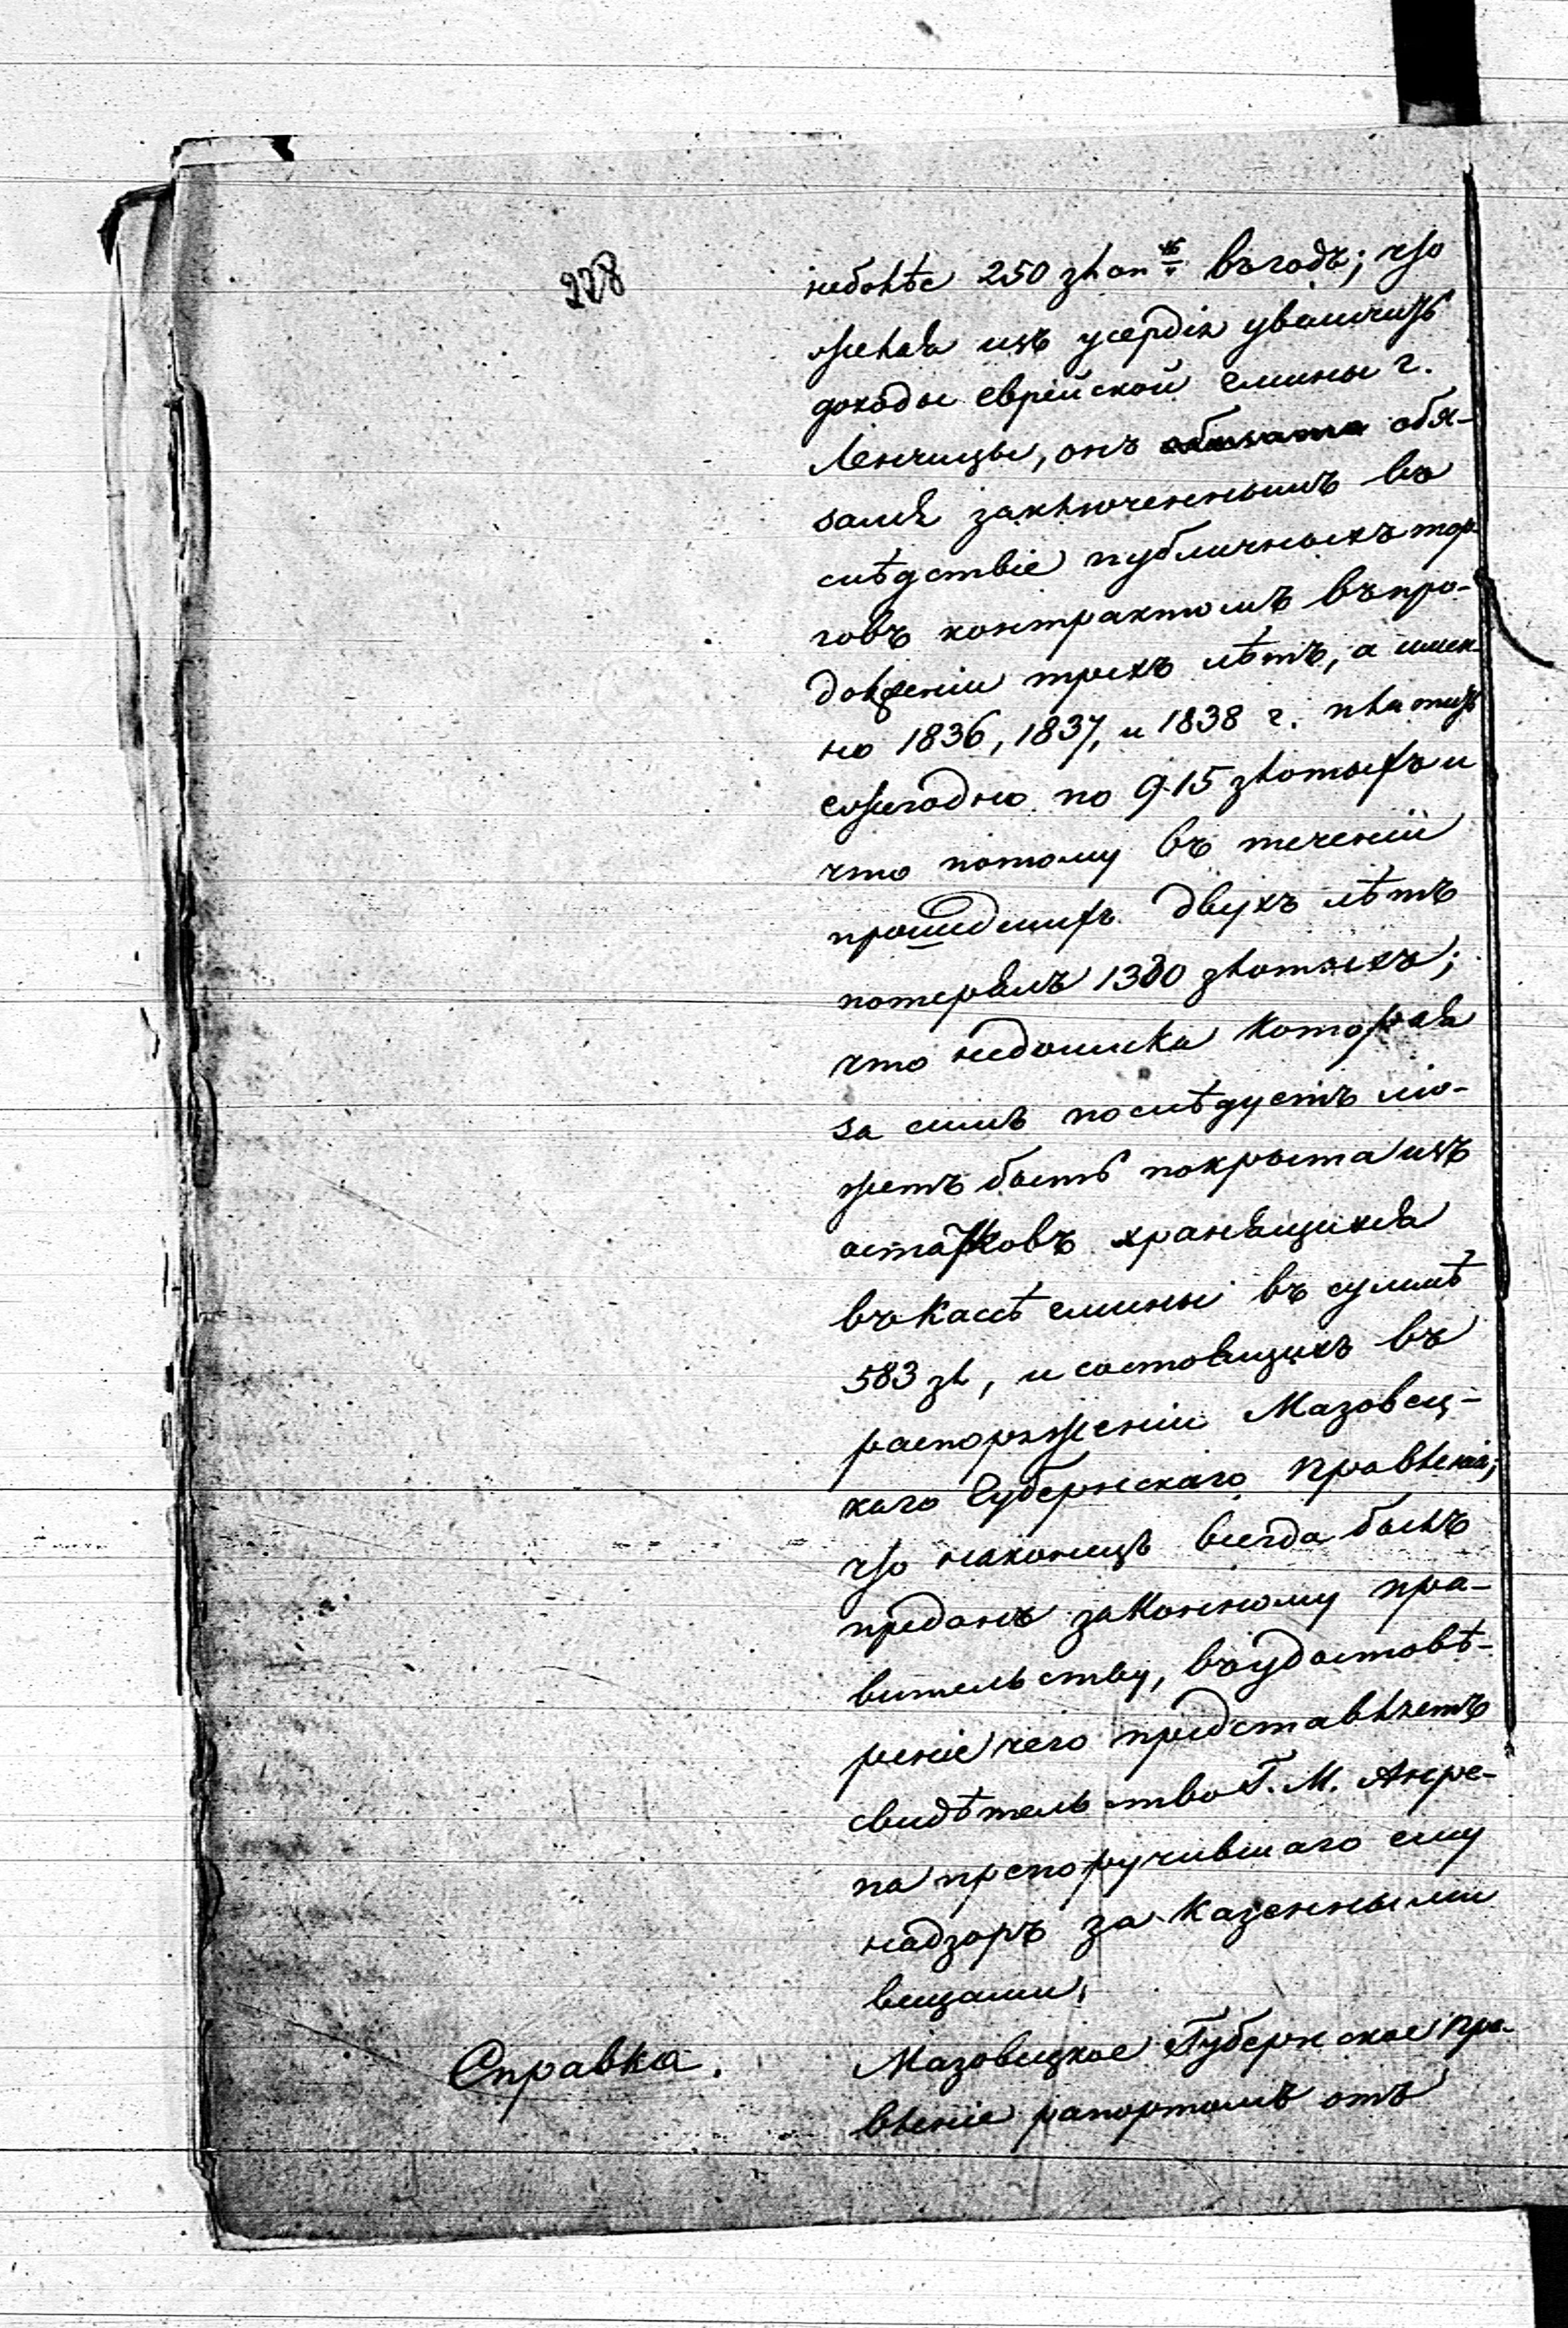 228
неболѣе 250 злот въ годъ; что
желая изъ усердія увеличить
доходы еврейской гмины г.
Ленчицы, онъ обя-
зался заключеннымъ въ
слѣдствіе публичныхъ тор
говъ контрактомъ въ про-
долженіи трехъ лѣтъ, а имен
но 1836, 1837, и 1838 г. платить
ежегодно по 915 злотыхъ и
что потому въ теченіи
прошедшихъ двухъ лѣтъ
потерялъ 1330 злотыхъ;
что недоимка которая
за симъ послѣдуетъ мо-
жетъ быть покрыта изъ
остатковъ хранящихся
въ кассѣ гмины въ суммѣ
583 зл, и состоящихъ въ
распоряженіи Мазовец-
каго Губернскаго Правленія;
что наконецъ всегда былъ
преданъ законному пра-
вительству, въ удостовѣ-
реніе чего представляетъ
свидѣтельство Г. М. Анре-
па препоручившаго ему
надзоръ за казенными
вещами.
Справка.
Мазовецкое Губернское Пра-
вленіе рапортомъ отъ